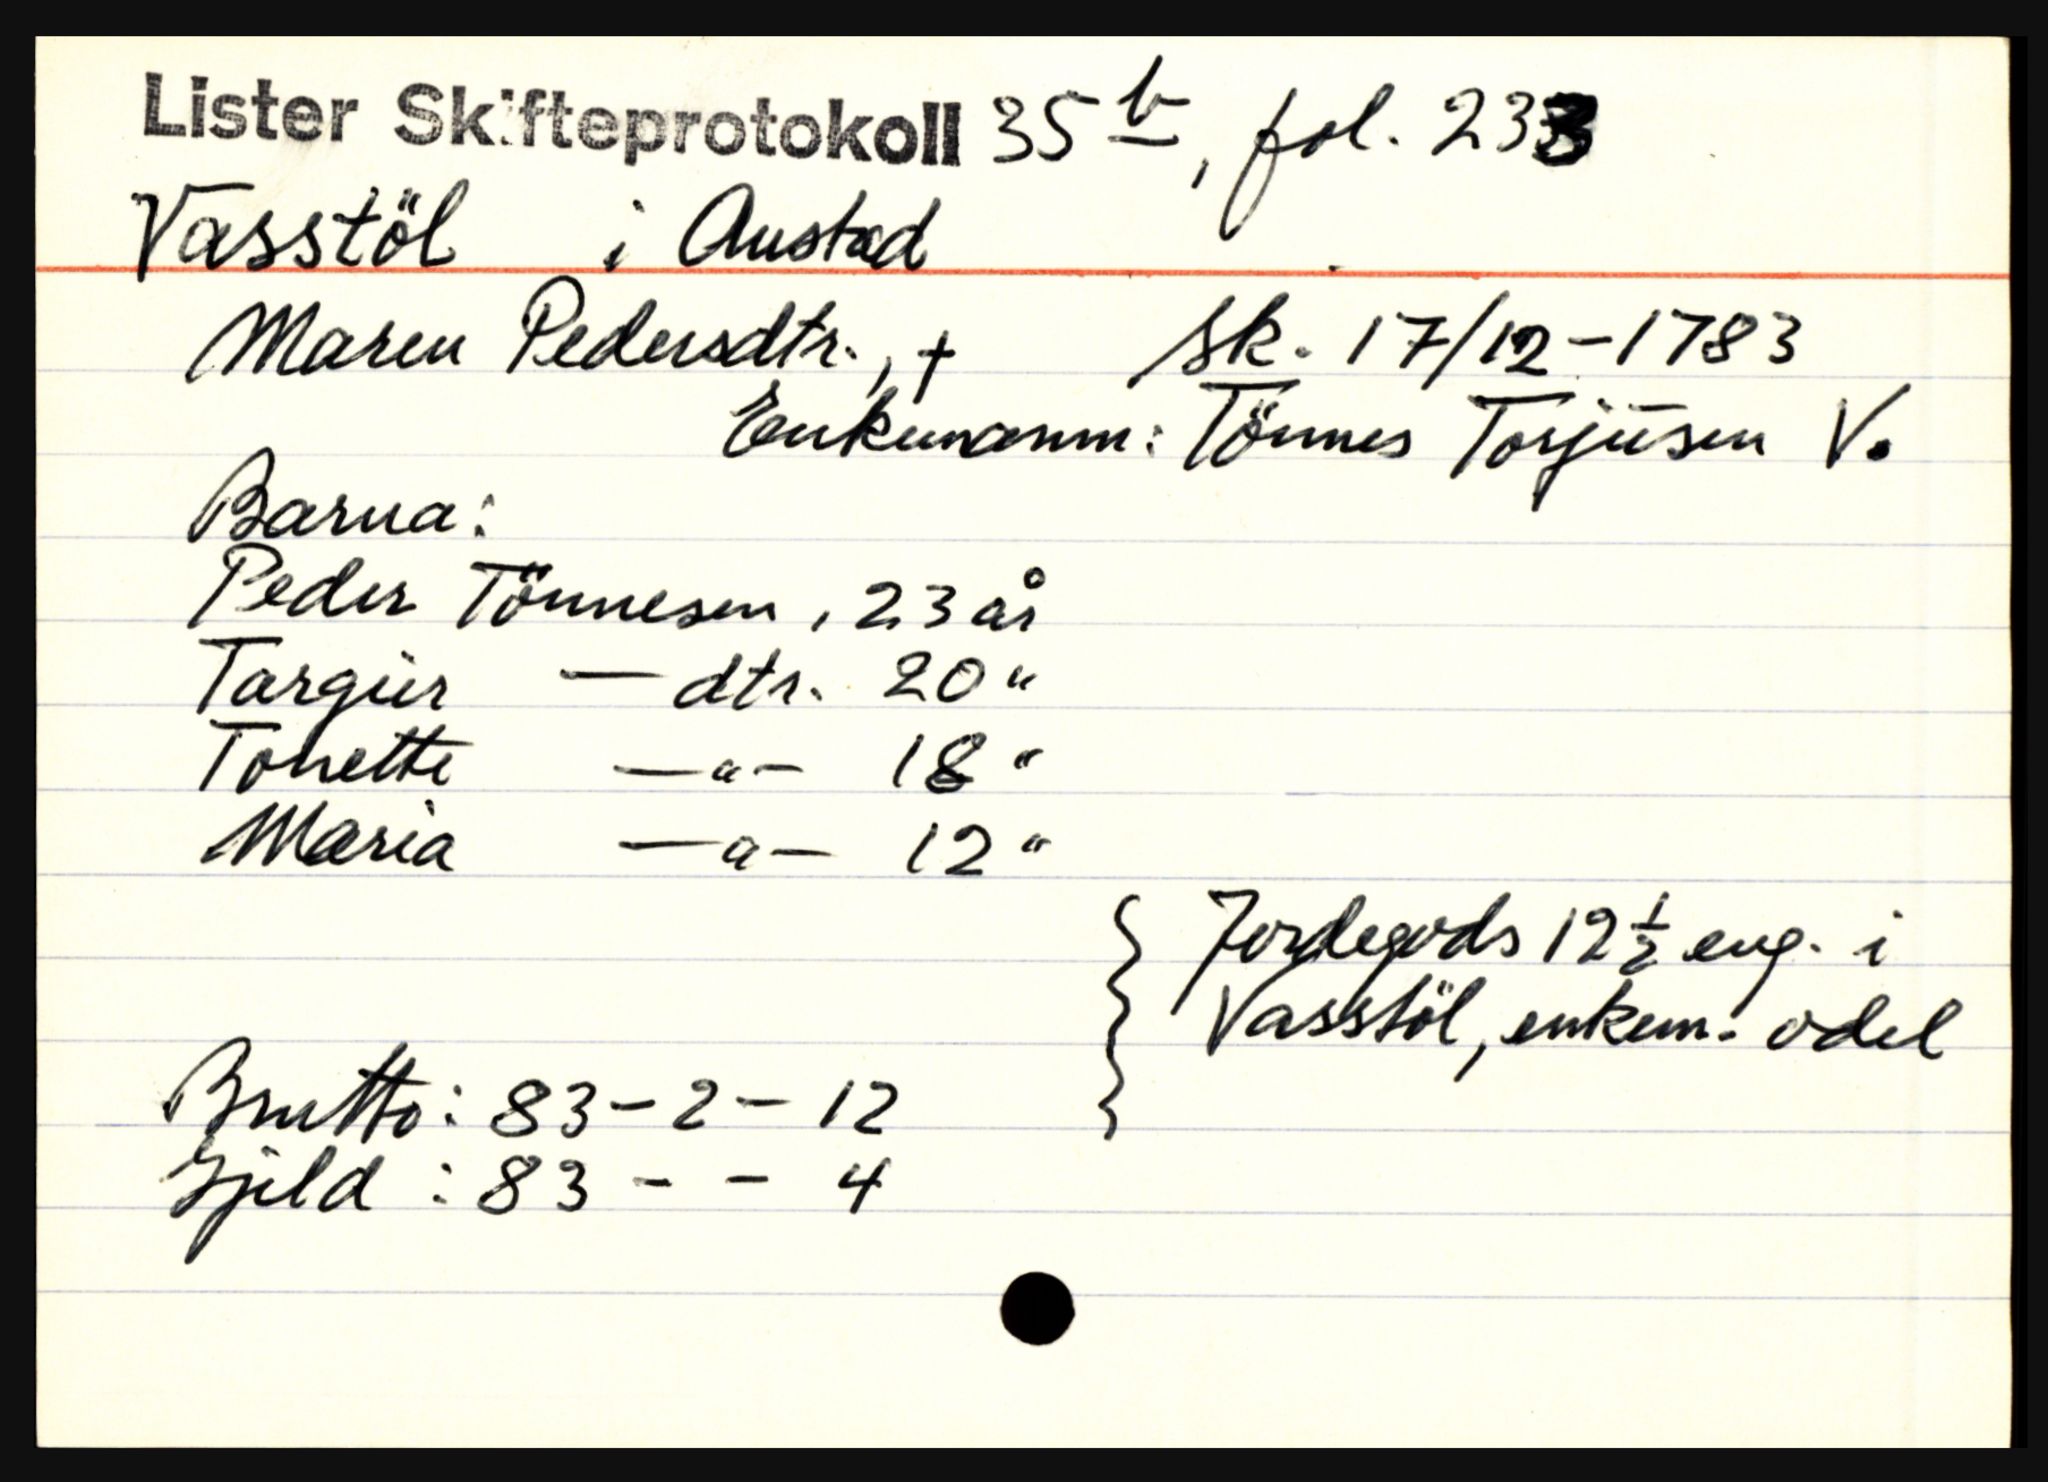 Lister Skifteprotokoll 35 b, fol. 233
Vasstöl i Austad
Maren Pedersdtr., + Sk. 17/12-1783
Enkemann: Tönnes Torjusen V.
Barna:
Peder Tönnesen, 23 år
Targier — dtr. 20 "
Tonette — " — 18 "
Maria — " — 12 "
Jordegods 12 1/2 eng. i
Vasstöl, enkem. odel
Brutto: 83 - 2 - 12
Gjeld : 83 - - 4